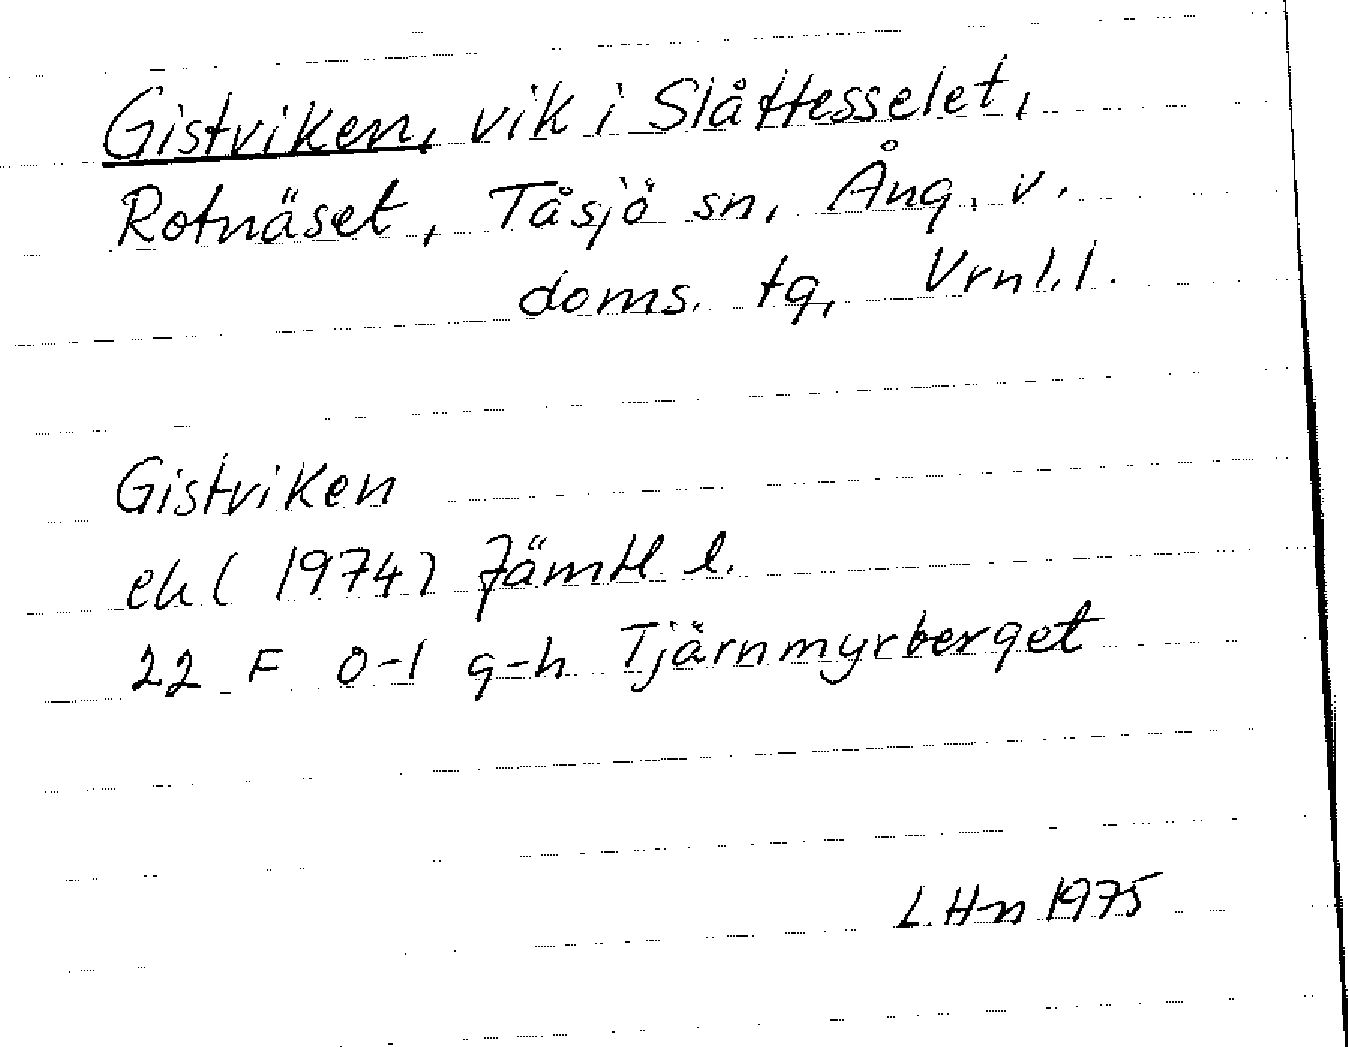 Gistviken, vik i Slåttesselet,
Rotnäset, Tåsjö sn, Ång. v.
doms. tg, Vrnl. l.
Gistviken
ek (1974) Jämtl l.
22 F 0-1 g-h Tjärnmyrberget
L.H-n 1975